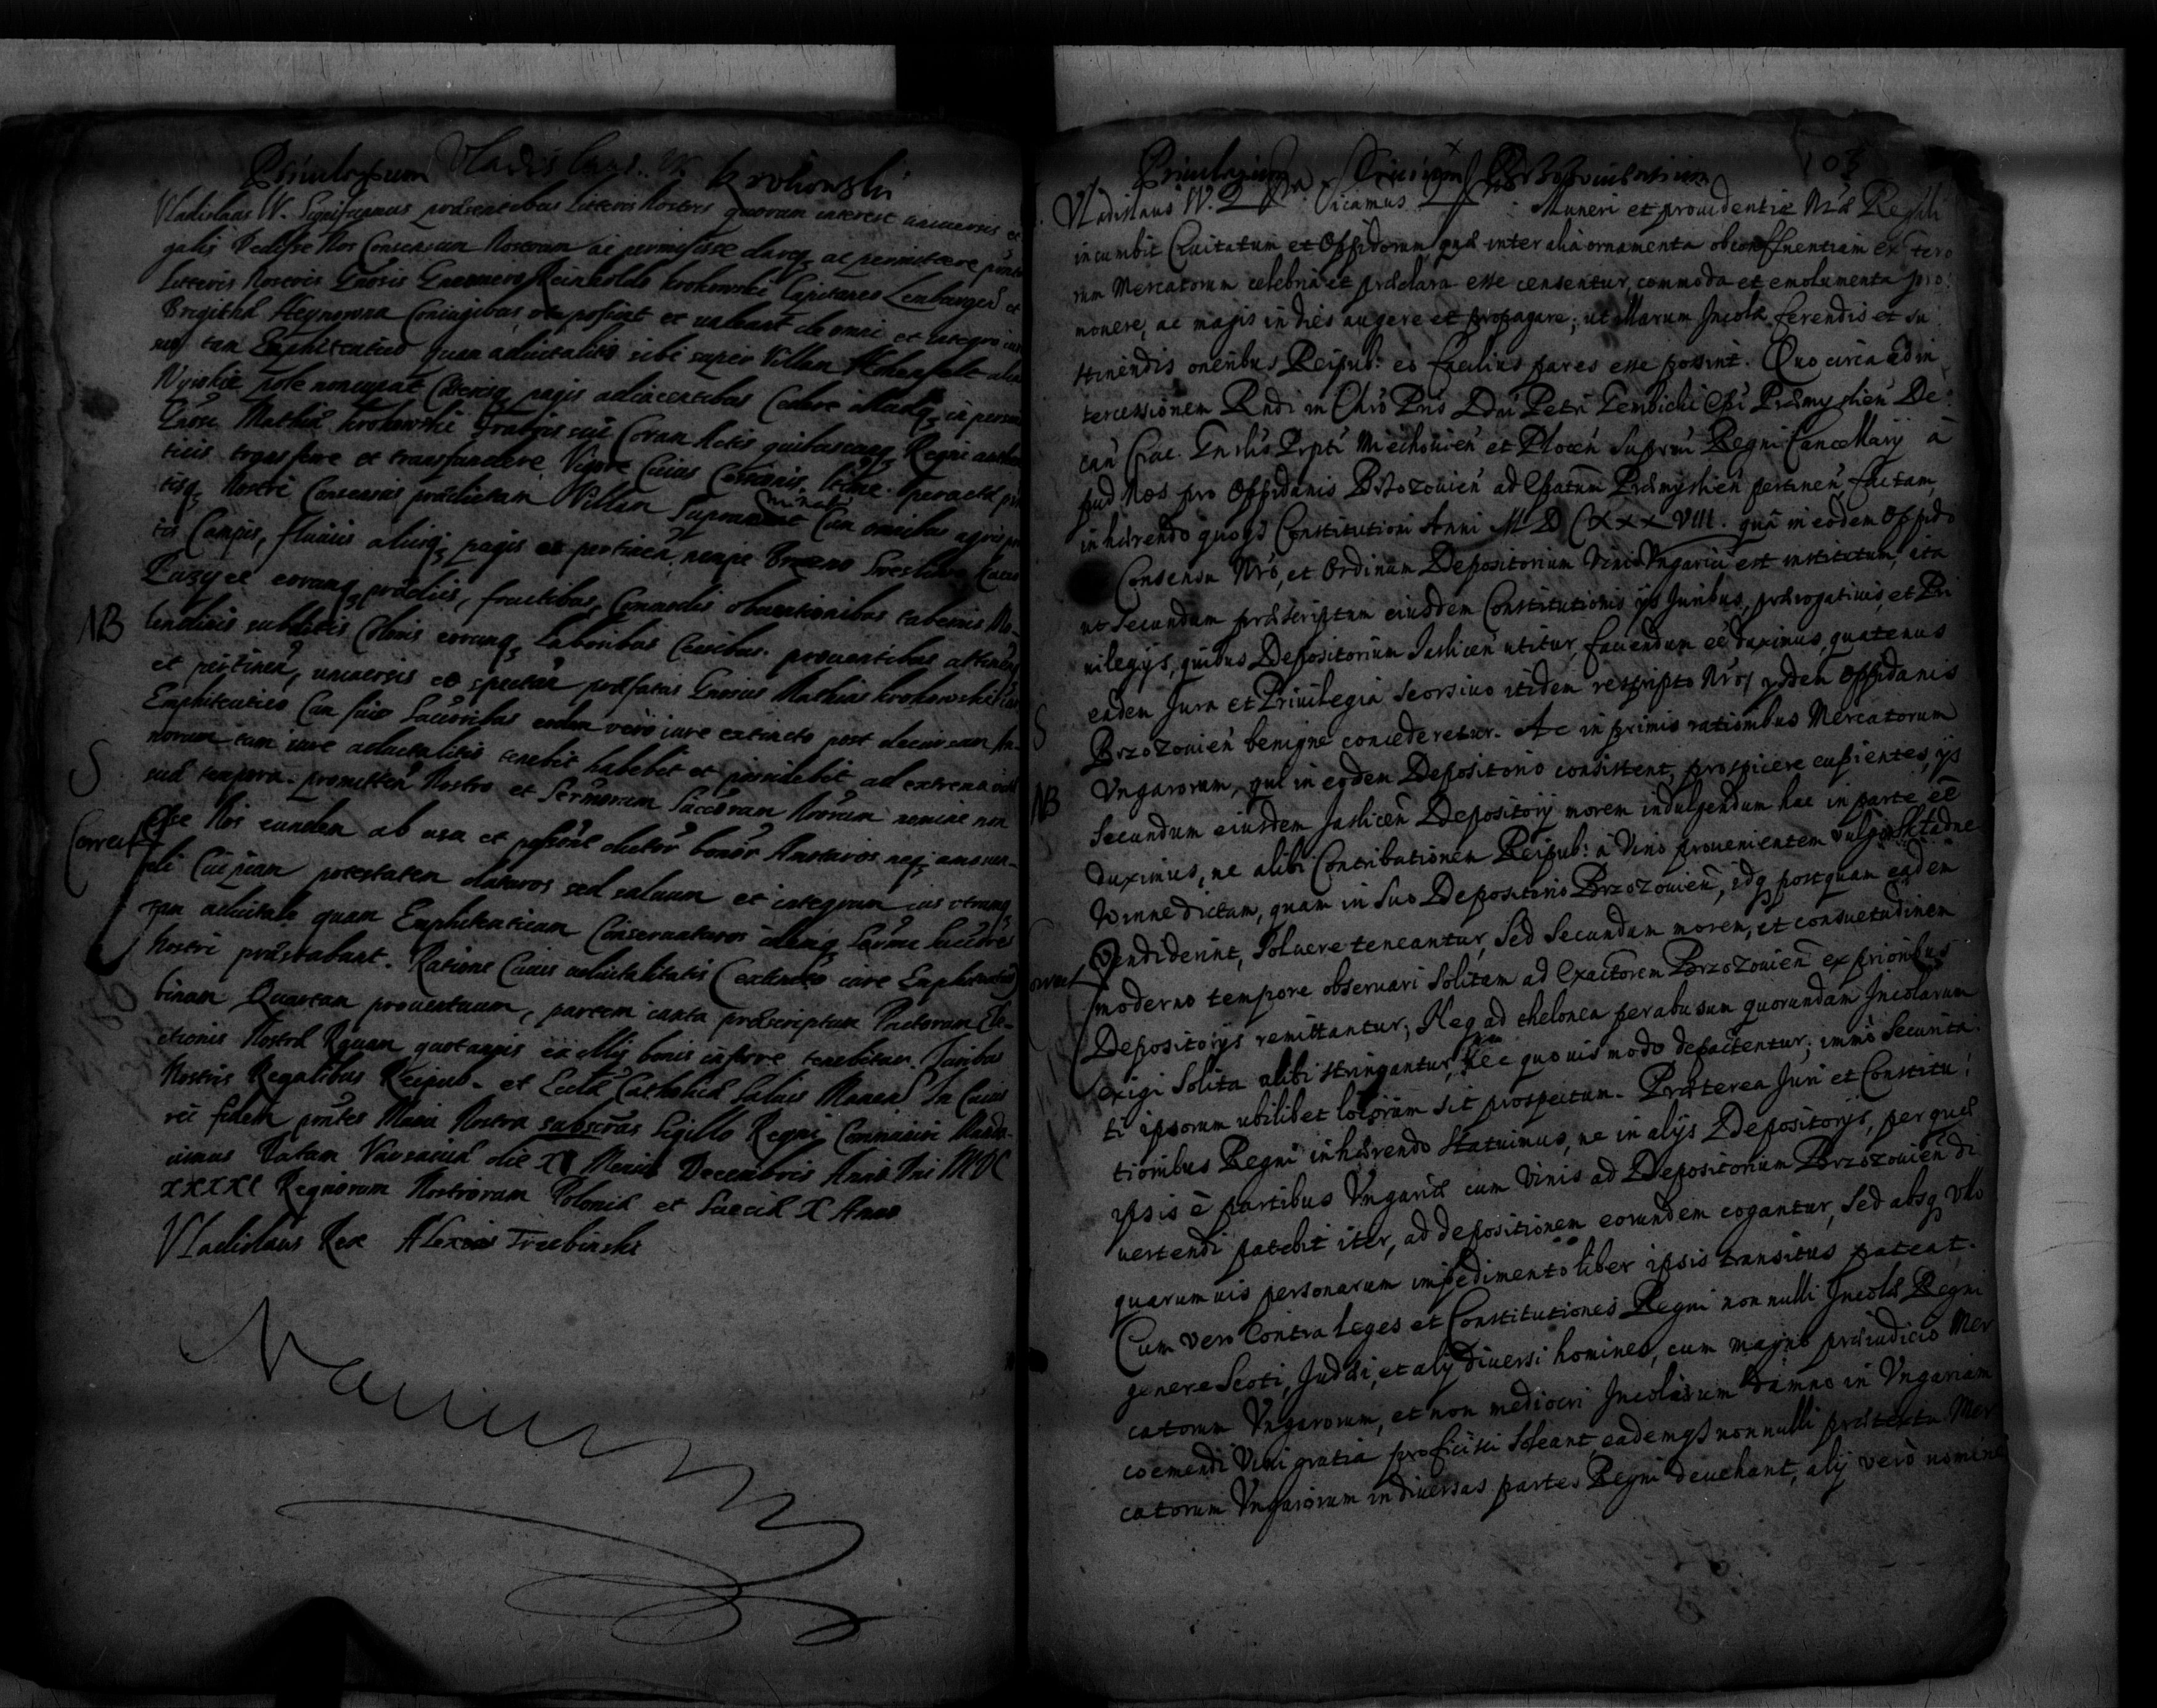 Priuilegium Vladislaus W Krokowski
Vladislaus IV. Significamus præsentibus Litteris Nostris quorum interest uniuersis et
galis Dedisse Nos Consensum Nostrum ac permisisse darq; ac permittere
Litteris Nostris Gnosis Reinholdo Krokowski Capitaneo Lemburgen et
Brigittæ Heynowna Coniugibus ut possint et ualeant de omni et integro iure
suo tam Emphiteutico quam aduitalitio sibi super Villam
pole nuncupat Cæterisq; pagis adiacentibus Cedere illudq; in personam
Gnosi Mathiæ Krokowski Fratris sui Coram Actis quibuscunq; Regni authen
ticis transferre et transfundere Vigore Cuius Cessionis,
tisq; Nostri Consensus prædictam Villam Cum omnibus agris
tis Campis, fluuiis aliisq; pagis et pertinen nempe
eorumq; prædiis, fructibus, Commodis obuentionibus tabernis Mo-
lendinis subditis Colonis eorumq; Laboribus Censibus prouentibus attinen
et pertinen, uniuersis et spectan præfatus Gnosus Mathias Krokowski
Emphiteutico Cum suis Successoribus eodem vero iure extincto post decursum An-
norum tam iure aduitalitio tenebit habebit et possidebit ad extrema uitæ
suæ tempora. promitten Nostro et Sermorum Succorum Nrorum nomine non
esse Nos eundem ab usu et possone dictor bonor Amoturos neq; amouen-
di Cuipiam potestatem daturos sed saluum et integrum ius utrumq;
tam aduitale quam Emphiteuticum Conseruaturos
Nostri præstabunt. Ratione Cuius aduitalitatis (extincto iure Emphiteutico)
binam Quartam prouentuum, partem iuxta præscriptum Pactorum Ele-
ctionis Nostræ quotannis ex illis bonis inferre tenebitur. Iuribus
Nostris Regalibus Reipub. et Eccłæ Catholicæ Saluis Manen. In Cuius
rei fidem pntes Manu Nostra subscras Sigillo Regni Communiri Manda-
uimus. Datum Varsauiæ die XI Mensis Decembris Anno Dni MDC
XXXXI Regnorum Nostrorum Poloniæ et Sueciæ X Anno
Vladislaus Rex Alexius Trzebinski
NB
S
Correct
103
Priuilegium
Vladislaus IV. Muneri et prouidentiæ Nræ Regali
incumbit Ciuitatum et Oppidorum quæ inter alia ornamenta ob confluentiam extero
rum Mercatorum celebria et præclara esse censentur, commoda et emolumenta pro
mouere, ac magis in dies augere et propagare; ut illarum Incolæ ferendis et su
stinendis oneribus Reipub: eo facilius pares esse possint. Quo circa ad in
tercessionem Rndi in Chro Pris Dni Petri Gembicki Epi Præmyslien De
can Crac. Gnslis Prpti Miechouien et Plocen Supremi Regni Cancellarij a
pud Nos pro Oppidanis Brzozouien ad Epatum Præmyslien pertinen, factam,
inhærendo quoq; Constitutioni Anni MDCXXXVIII. quâ in eodem Oppido
Consensu Nro, et Ordinum Depositorium Vini Vngarici est institutum, ita
ut secundum præscriptum eiusdem Constitutionis ijs Iuribus, prærogatiuis, et Pri
uilegijs, quibus Depositorium Jaslicen utitur, fauendum eē duximus, quatenus
eadem Jura et Priuilegia seorsiuo itidem rescripto Nro, ijsdem Oppidanis
Brzozouien benigne concederetur. Ac in primis rationibus Mercatorum
Vngarorum, qui in eodem Depositorio consistent, prospicere cupientes, ijs
Secundum eiusdem Jaslicen Depositorij morem indulgendum hac in parte eē
duximus, ne alibi Contributionem Reipub: à Vino prouenientem vulgo Składne
Winne dictam, quam in suo Depositorio Brzozouien, idq; postquam eadem
Vendiderint, soluere teneantur, sed secundum morem, et consuetudinem
moderno tempore obseruari solitam ad Exactorem Brzozouien ex prioribus
Depositorijs remittantur; Neq; ad thelonea per abusum quorundam Incolarum
exigi solita alibi stringantur, Nec quouis modo depactentur; immò securita
ti ipsorum ubilibet locorum sit prospectum. Præterea Juri et Constitu
tionibus Regni inhærendo statuimus, ne in alijs Depositorijs, per quæ
ipsis è partibus Vngariæ cum Vinis ad Depositorium Brzozouien di
uertendi patebit iter, ad depositionem eorundem cogantur, sed absq; ullo
quarumuis personarum impedimento liber ipsis transitus pateat.
Cum vero Contra leges et Constitutiones Regni nonnulli Incolæ Regni
genere Scoti, Judæi, et alij diuersi homines, cum magno præiudicio Mer
catorum Vngarorum, et non mediocri Incolarum damno in Vngariam
coemendi Vini gratia proficisci soleant, eademq; nonnulli prætextu Mer
catorum Vngarorum in diuersas partes Regni deuehant, alij verò nomine
S
NB
Correct